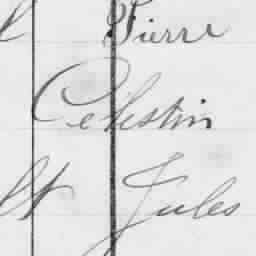 Pierre
Celestin
lt Jules